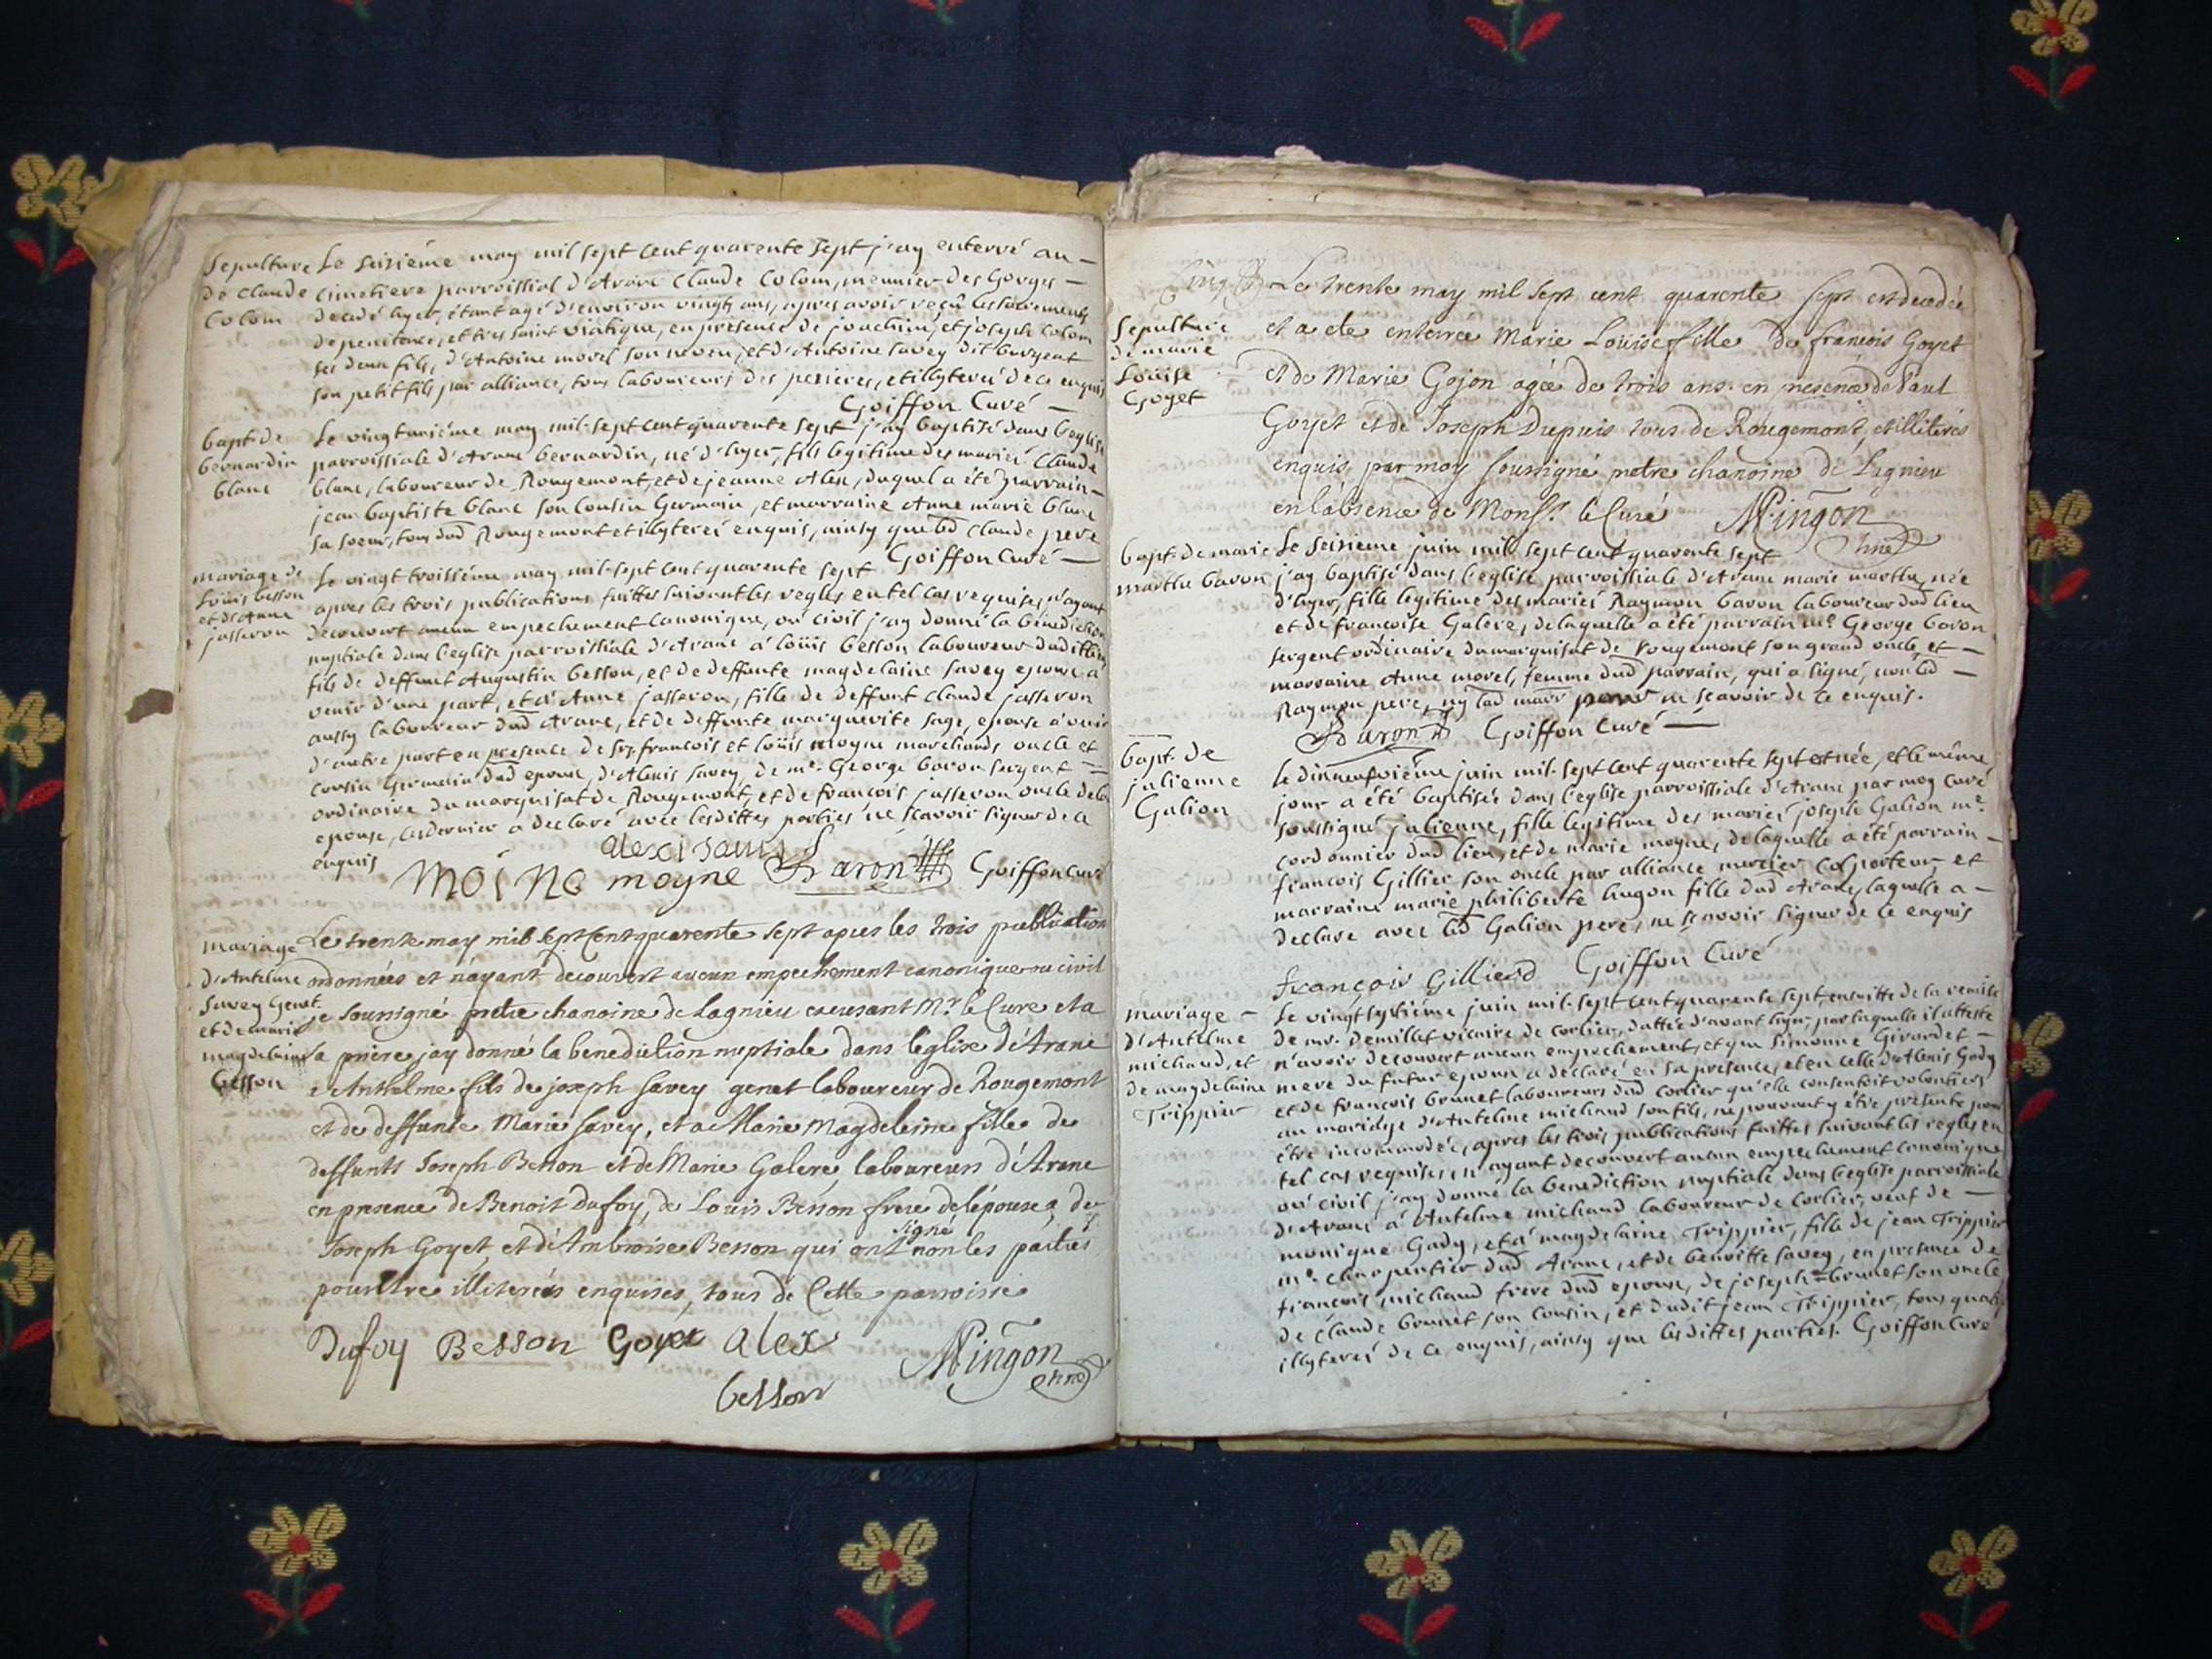 Sepulture
de Claude
Colom
Le seisiéme may mil sept cent quarente sept j'ay enterré au
cimetiere parroissial d'Aranc Claude Colom, meunier des Gorges
decedé hyer, étant agé d'environ vingts ans, apres avoir reçû les sacrements
de penitence, et tres saint viatique, en presence de joachim, et joseph Colom
ses deux fils, d'Antoine morel son neveu, et d'Antoine savey dit
son petit fils par alliance, tous laboureurs des pezieres, et illyterés de ce enquis
Goiffon Curé
bapt. de
bernardin
blanc
Le vingtuniéme may mil sept cent quarente sept j'ay baptisé dans l'eglise
parroissiale d'Aranc bernardin, né d'hyer, fils legitime des mariés Claude
blanc, laboureur de Rougemont, et de jeanne Alex, duquel a été parrain
jean baptiste blanc son cousin Germain, et marraine Anne marie blanc
sa soeur, tous dud Rougemont et illyterés enquis, ainsy que led Claude pere
Goiffon Curé
mariage de
Loüis besson
et d'Anne
jasseron
Le vingt troisiéme may mil sept cent quarente sept
apres les trois publications faittes suivant les regles en tel cas requises, n'ayant
decouvert aucun empechement canonique, ou civil j'ay donné la benediction
nuptiale dans l'eglise parroissiale d'Aranc à loüis besson laboureur dudit lieu
fils de deffunt Augustin besson, et de deffunte magdelaine savey epoux à
venir d'une part, et à Anne jasseron, fille de deffunt claude jasseron
aussy laboureur dud Aranc, et de deffunte marguerite sage, epouse à venir
d'autre part en presence de srs francois et loüis moyne marchands oncle et
cousin Germain dud epoux, d'Alexis savey, de me. George baron sergent
ordinaire du marquisat de Rougemont, et de francois jasseron oncle de la
epouse, les dernier a declaré avec lesdittes parties ne scavoir signer de ce
enquis
alexi savey
moine moyne Baron Goiffon Curé
mariage
d'Antelme
Savey Genet
et de marie
magdelaine
besson
Le trente may mil sept cent quarente sept apres les trois publication
ordonnées et n'ayant decouvert aucun empechement canonique ou civil
je soussigné pretre chanoine de Lagnieu excusant Mr. le Curé et a
sa priere j'ay donné la benediction nuptiale dans l'eglise d'Aranc
a Anthelme fils de joseph savey genet laboureur de Rougemont
et de deffunte Marie savey, et a Marie Magdeleine fille de
deffunts Joseph Besson et de Marie Galere, laboureurs d'Aranc
en presence de Benoit Dufoy, de Louis Besson frere de l'epouse, de
signé
Joseph Goyet et d'Ambroise Besson qui ont non les parties
pour être illiterées enquises, tous de cette parroisse
Dufoy Besson Goyet alex
besson
Mingon
chne
Sepulture
de marie
Loüise
Goyet
Le trente may mil sept cent quarente sept est decedée
et a ete enterrée Marie Louise fille de francois Goyet
et de Marie Gojon agée de trois ans en presence de Paul
Goyet et de Joseph Dupuis tous de Rougemont, et illiterés
enquis par moy soussigné pretre chanoine de Lagnieu
en l'absence de Monsr. le Curé Mingon
chne
bapt. de marie
martha baron
Le seisiéme juin mil sept cent quarente sept
j'ay baptisé dans l'eglise parroissiale d'Aranc marie martha, née
d'hyer, fille legitime des mariés Raymon baron laboureur dud lieu
et de francoise Galere, de laquelle a été parrain me. George baron
sergent ordinaire du marquisat de Rougemont son grand oncle, et
marraine Anne morel, femme dud parrain, qui a signé, non led
Raymon pere, ny lad marr pour ne scavoir de ce enquis.
Baron Goiffon Curé
bapt. de
julienne
Galion
Le dixneufviéme juin mil sept cent quarente sept est née, et le même
jour a été baptisée dans l'eglise parroissiale d'Aranc par moy curé
soussigné julienne, fille legitime des mariés joseph Galion me.
cordonnier dud lieu, et de marie moyne, de laquelle a été parrain
francois Gillier son oncle par alliance mercier colporteur, et
marraine marie philiberte hugon fille dud Aranc, laquelle a
declaré avec led Galion pere, ne scavoir signer de ce enquis
françois Gillierd Goiffon Curé
mariage
d'Antelme
michaud, et
de magdelaine
Trippier
Le vingt sixiéme juin mil sept cent quarente sept, ensuitte de la remise
de mr. demillet vicaire de corlier, dattée d'avant hyer, par laquelle il atteste
n'avoir decouvert aucun empechement, et que simonne Girardet
mere du futur epoux a declaré en sa presence, et en celle d'Alexis Gady
et de francois brunet laboureurs dud corlier qu'elle consentoit volontiers
au mariage d'Antelme michaud son fils, ne pouvant y être presente pour
être incommodée, apres les trois publications faittes suivant les regles en
tel cas requises, n'ayant decouvert aucun empechement canonique
ou civil j'ay donné la benediction nuptiale dans l'eglise parroissiale
d'Aranc à Antelme michaud laboureur de Corlier, veuf de
monique Gady, et à magdelaine Trippier, fille de jean Trippier
me. charpentier dud Aranc, et de benoitte savey, en presence de
francois michaud frere dud epoux, de joseph brunet son oncle
de claude brunet son cousin, et dudit jean Trippier, tous quatre
illyterés de ce enquis, ainsy que lesdittes parties. Goiffon Curé